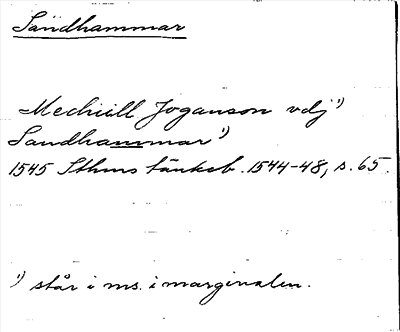 Sandhammar
Mechiill Joganson vdj 1)
Sandhammar 1)
1545 Sthms tänkeb. 1544-48, s. 65.
1) står i ms. i marginalen.